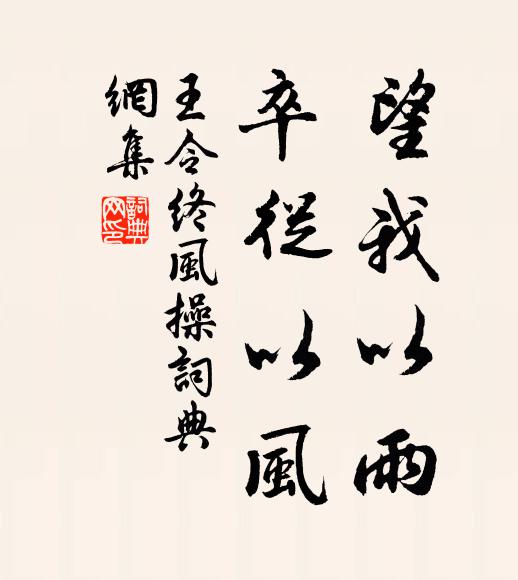 望我以雨
卒從以風
王令終風操詞典
網集
詞典
网印